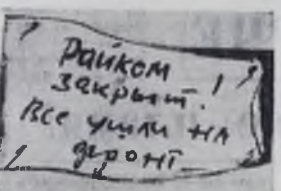 Райком
закрыт!
Все ушли на
фронт